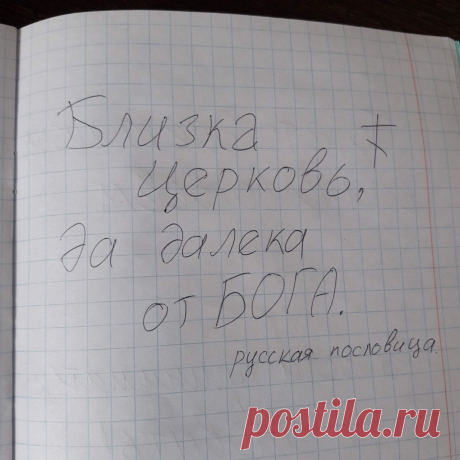 Близка
церковь,
да далека
от БОГА.
русская пословица.
postila.ru